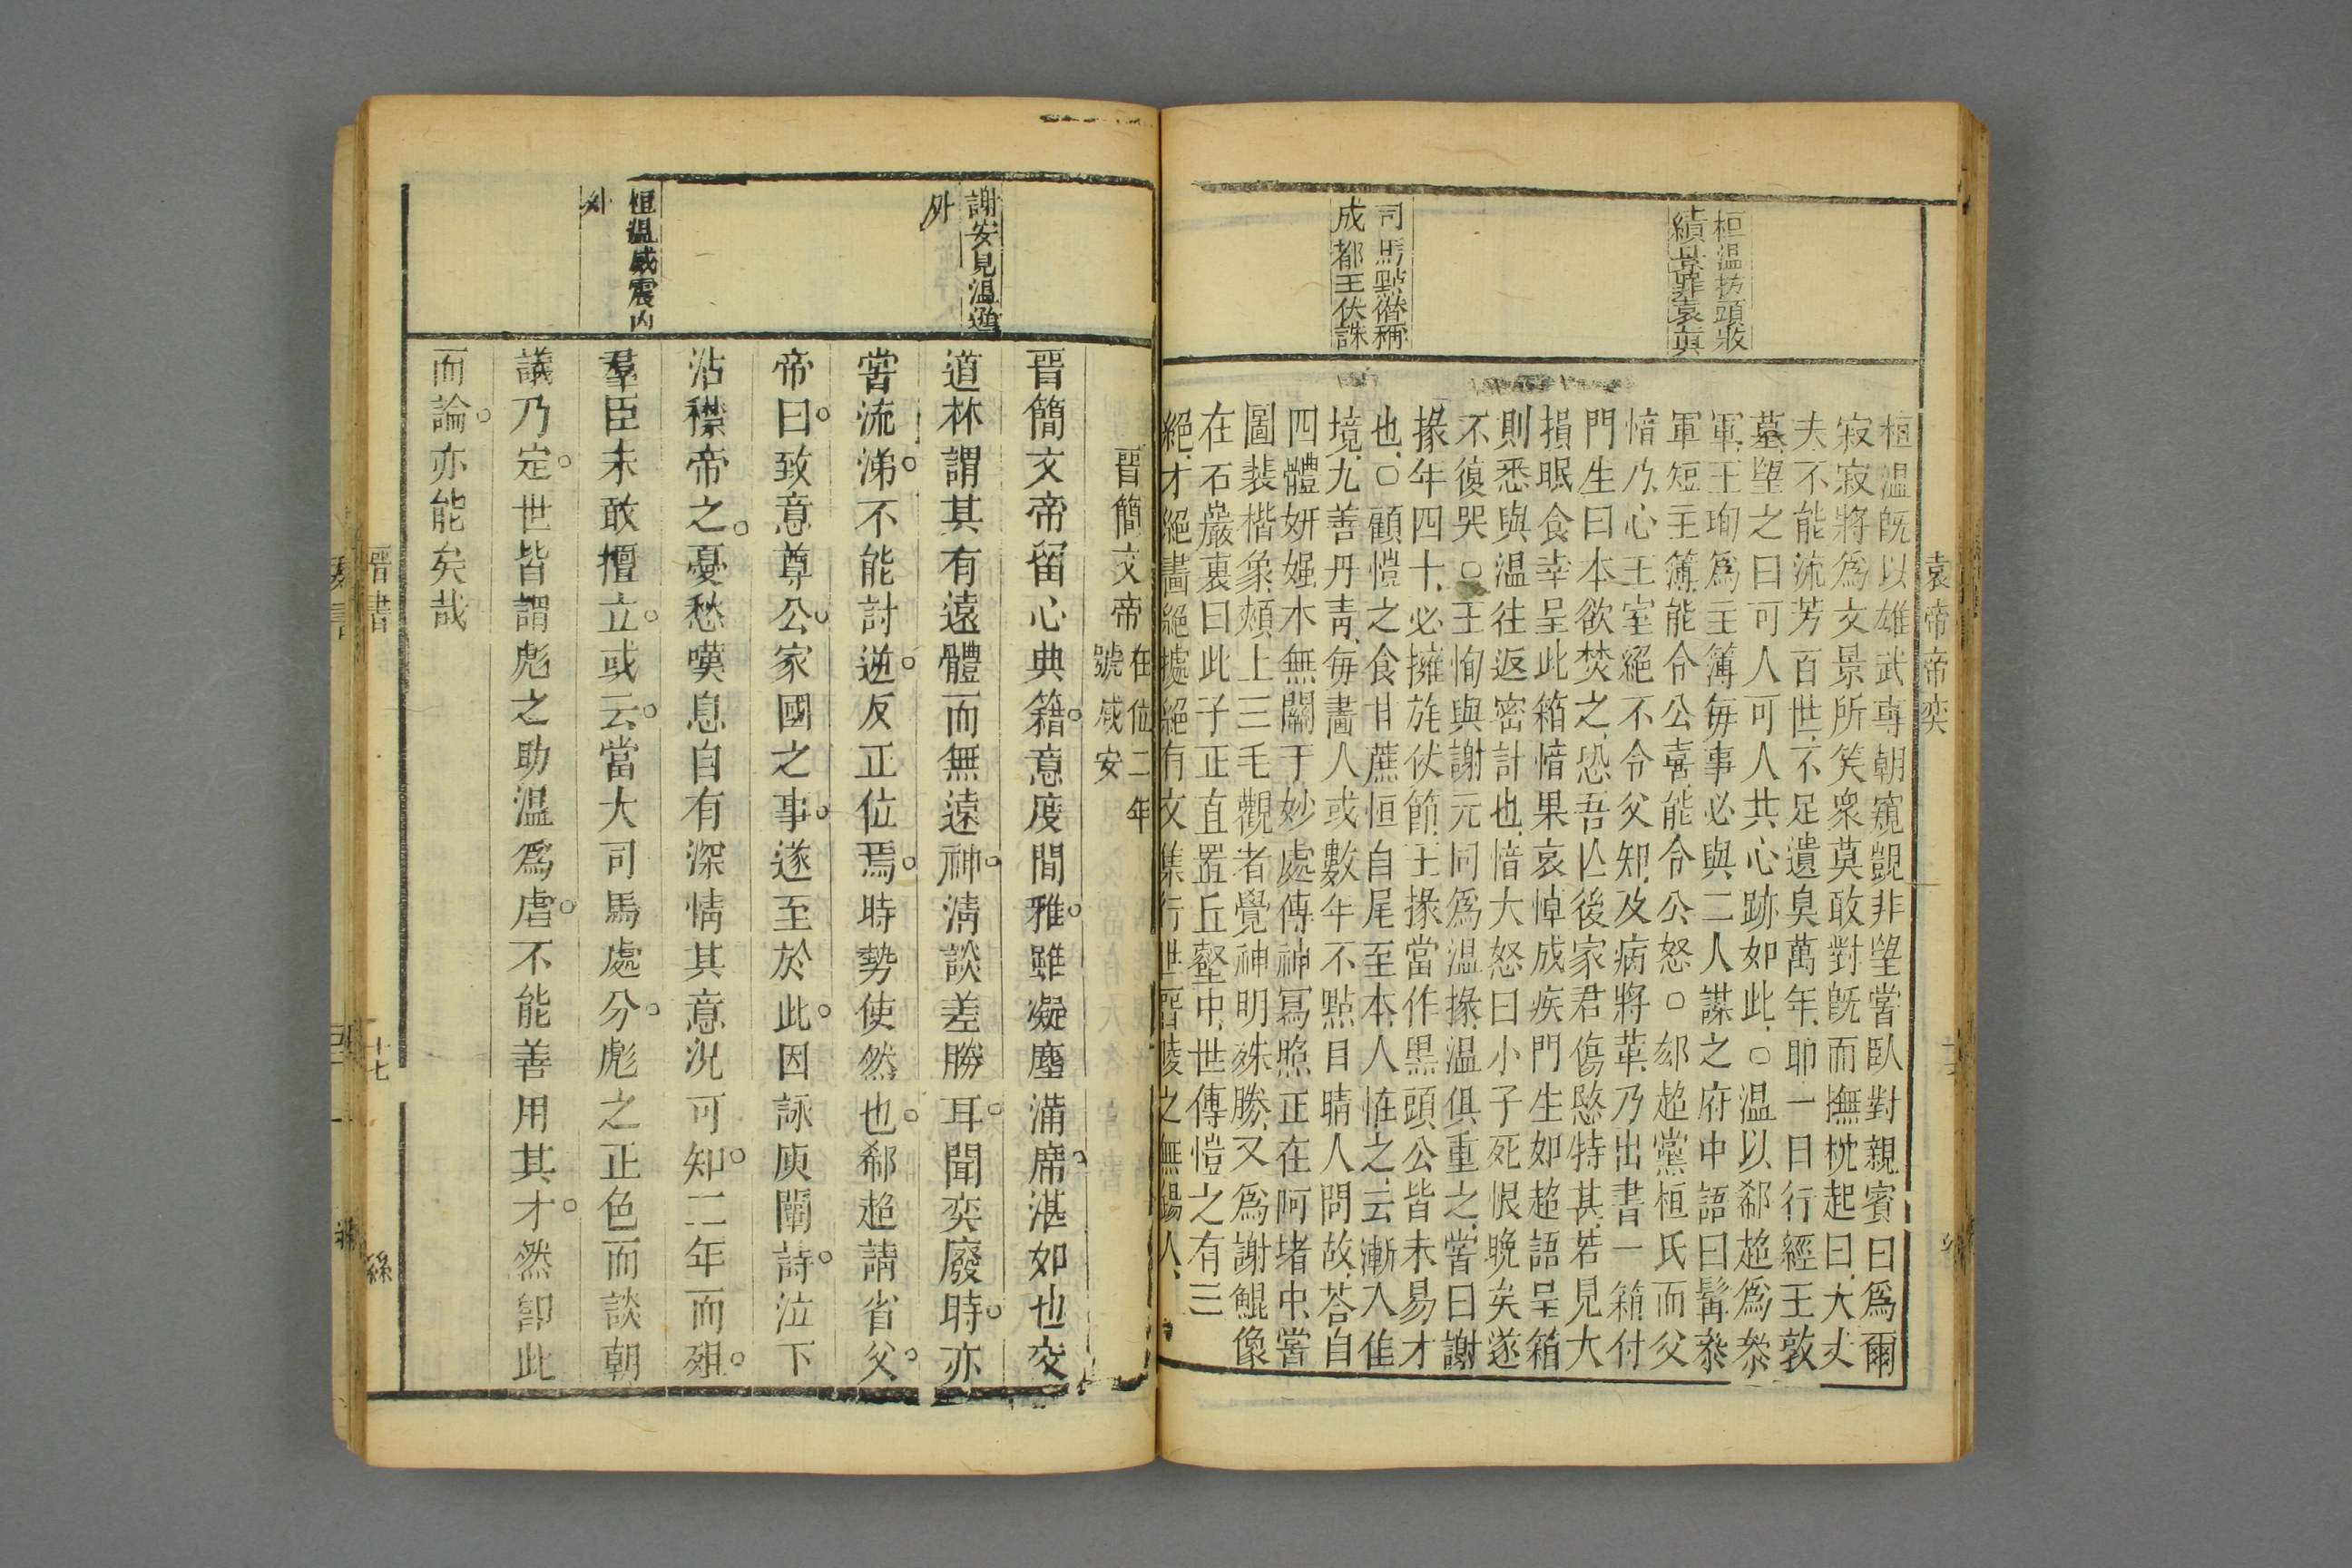 哀帝帝奕
桓温抜頭收
績歸罪袁真
司馬㸃僣稱
成都王伏誅
桓温旣以雄武專朝窺覬非望嘗臥對親賓曰爲爾
寂寂將爲文景所笑衆莫敢對旣而撫枕起曰大丈
夫不能流芳百世不足遺臭萬年耶一日行經王敦
墓望之曰可人可人共心跡如此○温以郗超爲叅
軍王珣爲主簿毎事必與二人謀之府中語曰髯叅
軍短主簿能令公喜能令公怒○郄超黨桓氏而父
愔乃心王室絕不令父知及病將革乃出書一箱付
門生曰本欲焚之恐吾亾後家君傷愍特甚若見大
損眠食幸呈此箱愔果哀悼成疾門生如超語呈箱
則悉與温往返密計也愔大怒曰小子死恨晚矣遂
不復哭○王恂與謝元同爲温掾温俱重之嘗曰謝
掾年四十必擁旄仗節王掾當作黑頭公皆未易才
也○顧愷之食甘蔗恒自尾至本人怪之云漸入佳
境九善丹靑毎畵人或數年不㸃目睛人問故荅自
四體妍媸木無關于妙處傳神冩照正在阿堵中嘗
圖裴楷象頰上三毛觀者覺神明殊勝又爲謝鯤像
在石巖裏曰此子正直置丘壑中世傳愷之有三
絕才絕畵絕癡絕有文集行世晋陵之無錫人
晋簡文帝
在位二年
號咸安
謝安見温遥
外
桓温威震內
外
晋簡文帝留心典籍意度閒雅雖凝塵滿席湛如也交
道林謂其有遠體而無遠神淸談差勝耳聞奕廢時亦
嘗流涕不能討逆反正位焉時勢使然也郗超請省父
帝曰致意尊公家國之事遂至於此因詠庾闡詩泣下
沾襟帝之憂愁嘆息自有深情其意况可知二年而殂
羣臣未敢擅立或云當大司馬處分彪之正色而談朝
議乃定世皆謂彪之助温爲虐不能善用其才然卽此
而論亦能矣哉
晋書
十七
絲